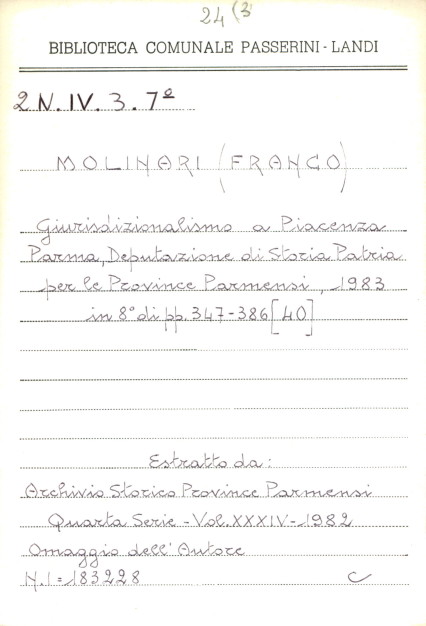 24 (3
BIBLIOTECA COMUNALE PASSERINI-LANDI
2 N. IV. 3. 7º
MOLINARI (FRANCO)
Giurisdizionalismo a Piacenza
Parma, Deputazione di Storia Patria
per le Province Parmensi, 1983
in 8° di pp. 347-386 [40]
Estratto da:
Archivio Storico Province Parmensi
Quarta Serie - Vol. XXXIV - 1982
Omaggio dell'Autore
N.I = 183228 C